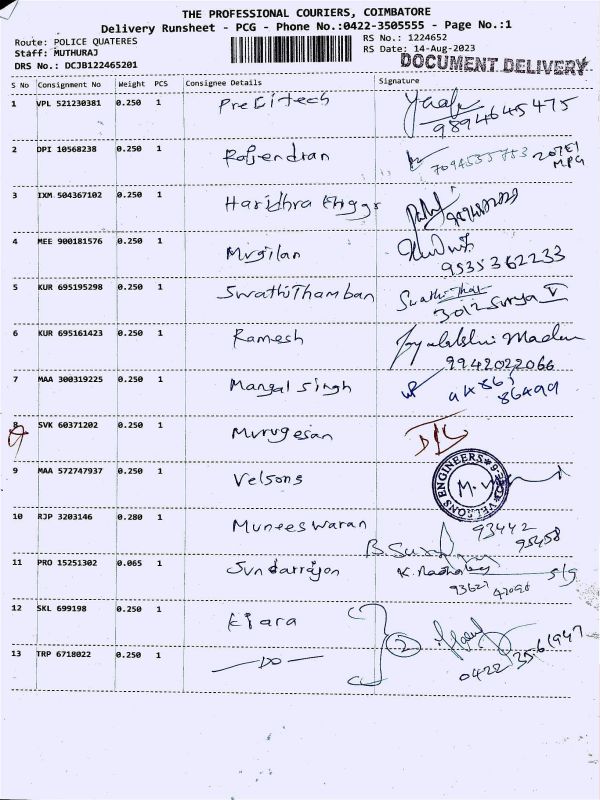 THE PROFESSIONAL COURIERS, COIMBATORE
Delivery Runsheet - PCG - Phone No.:0422-3505555 - Page No.:1
Route: POLICE QUATERES
Staff: MUTHURAJ
DRS No.: DCJB122465201
RS No.: 1224652
RS Date: 14-Aug-2023
DOCUMENT DELIVERY
S No Consignment No Weight PCS Consignee Details Signature
1 VPL 521230381 0.250 1
9894645475
2 DPI 10568238 0.250 1 Rajendran
3 IXM 504367102 0.250 1 Haridhra
4 MEE 900181576 0.250 1 Mugilan
9535362233
5 KUR 695195298 0.250 1 Swathi Thamban
3012 Surya V
6 KUR 695161423 0.250 1 Ramesh
9942022066
7 MAA 300319225 0.250 1 Mangal Singh
86499
8 SVK 60371202 0.250 1 Murugesan D/L
9 MAA 572747937 0.250 1 Velsons
VELSONS ENGINEERS
10 RJP 3203146 0.280 1 Muneeswaran
93442
95458
11 PRO 15251302 0.065 1 Sundarrajan
12 SKL 699198 0.250 1 Kiara
2
13 TRP 6718022 0.250 1 —DO—
0422